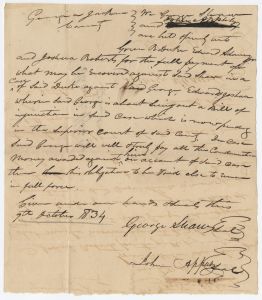 Georgia Jackson } We George Shaw
County } and
are held firmly unto
Green B Duke Edward
and Joshua Roberts for the full payment of
what may be recovered against said Shaw in a
Case of said Duke against George Edward Joshua
where said George is about suing out a Bill of
injunction in said case which is now pending
in the Superior Court of said County In case
said George will well & truly pay all the Condemnation
Money awarded against on account of said Case
then this obligation to be void else to remain
in full force
Given under our hands & seals this
9th October 1834
George Shaw Seal
John Apperly Seal